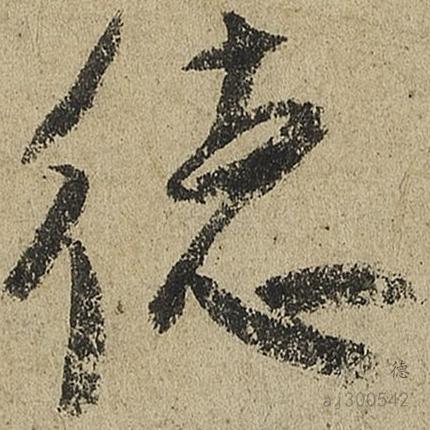 德
德
a1300542